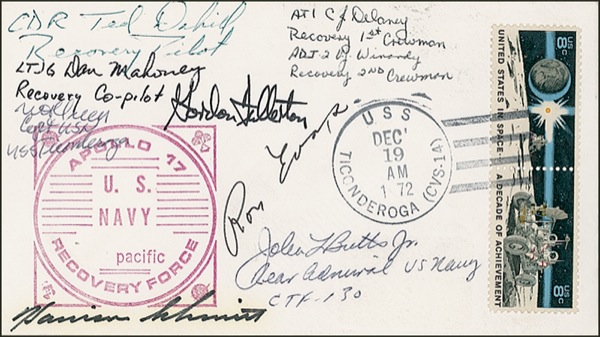 CDR Ted Dahill
Recovery Pilot
LTJG Dan Mahoney
Recovery Co-pilot
Capt USN
USS Ticonderoga
AT1 C J Delaney
Recovery 1st Crewman
ADJ-2 Winardy
Recovery 2ND Crewman
Gordon Fullerton
Ron Evans
APOLLO 17
U. S.
NAVY
pacific
RECOVERY FORCE
USS
DEC
19
AM
1972
TICONDEROGA (CVS-14)
John L Butts Jr.
Rear Admiral US Navy
CTF-130
Harrison Schmitt
US 8c
UNITED STATES IN SPACE... A DECADE OF ACHIEVEMENT
US 8c